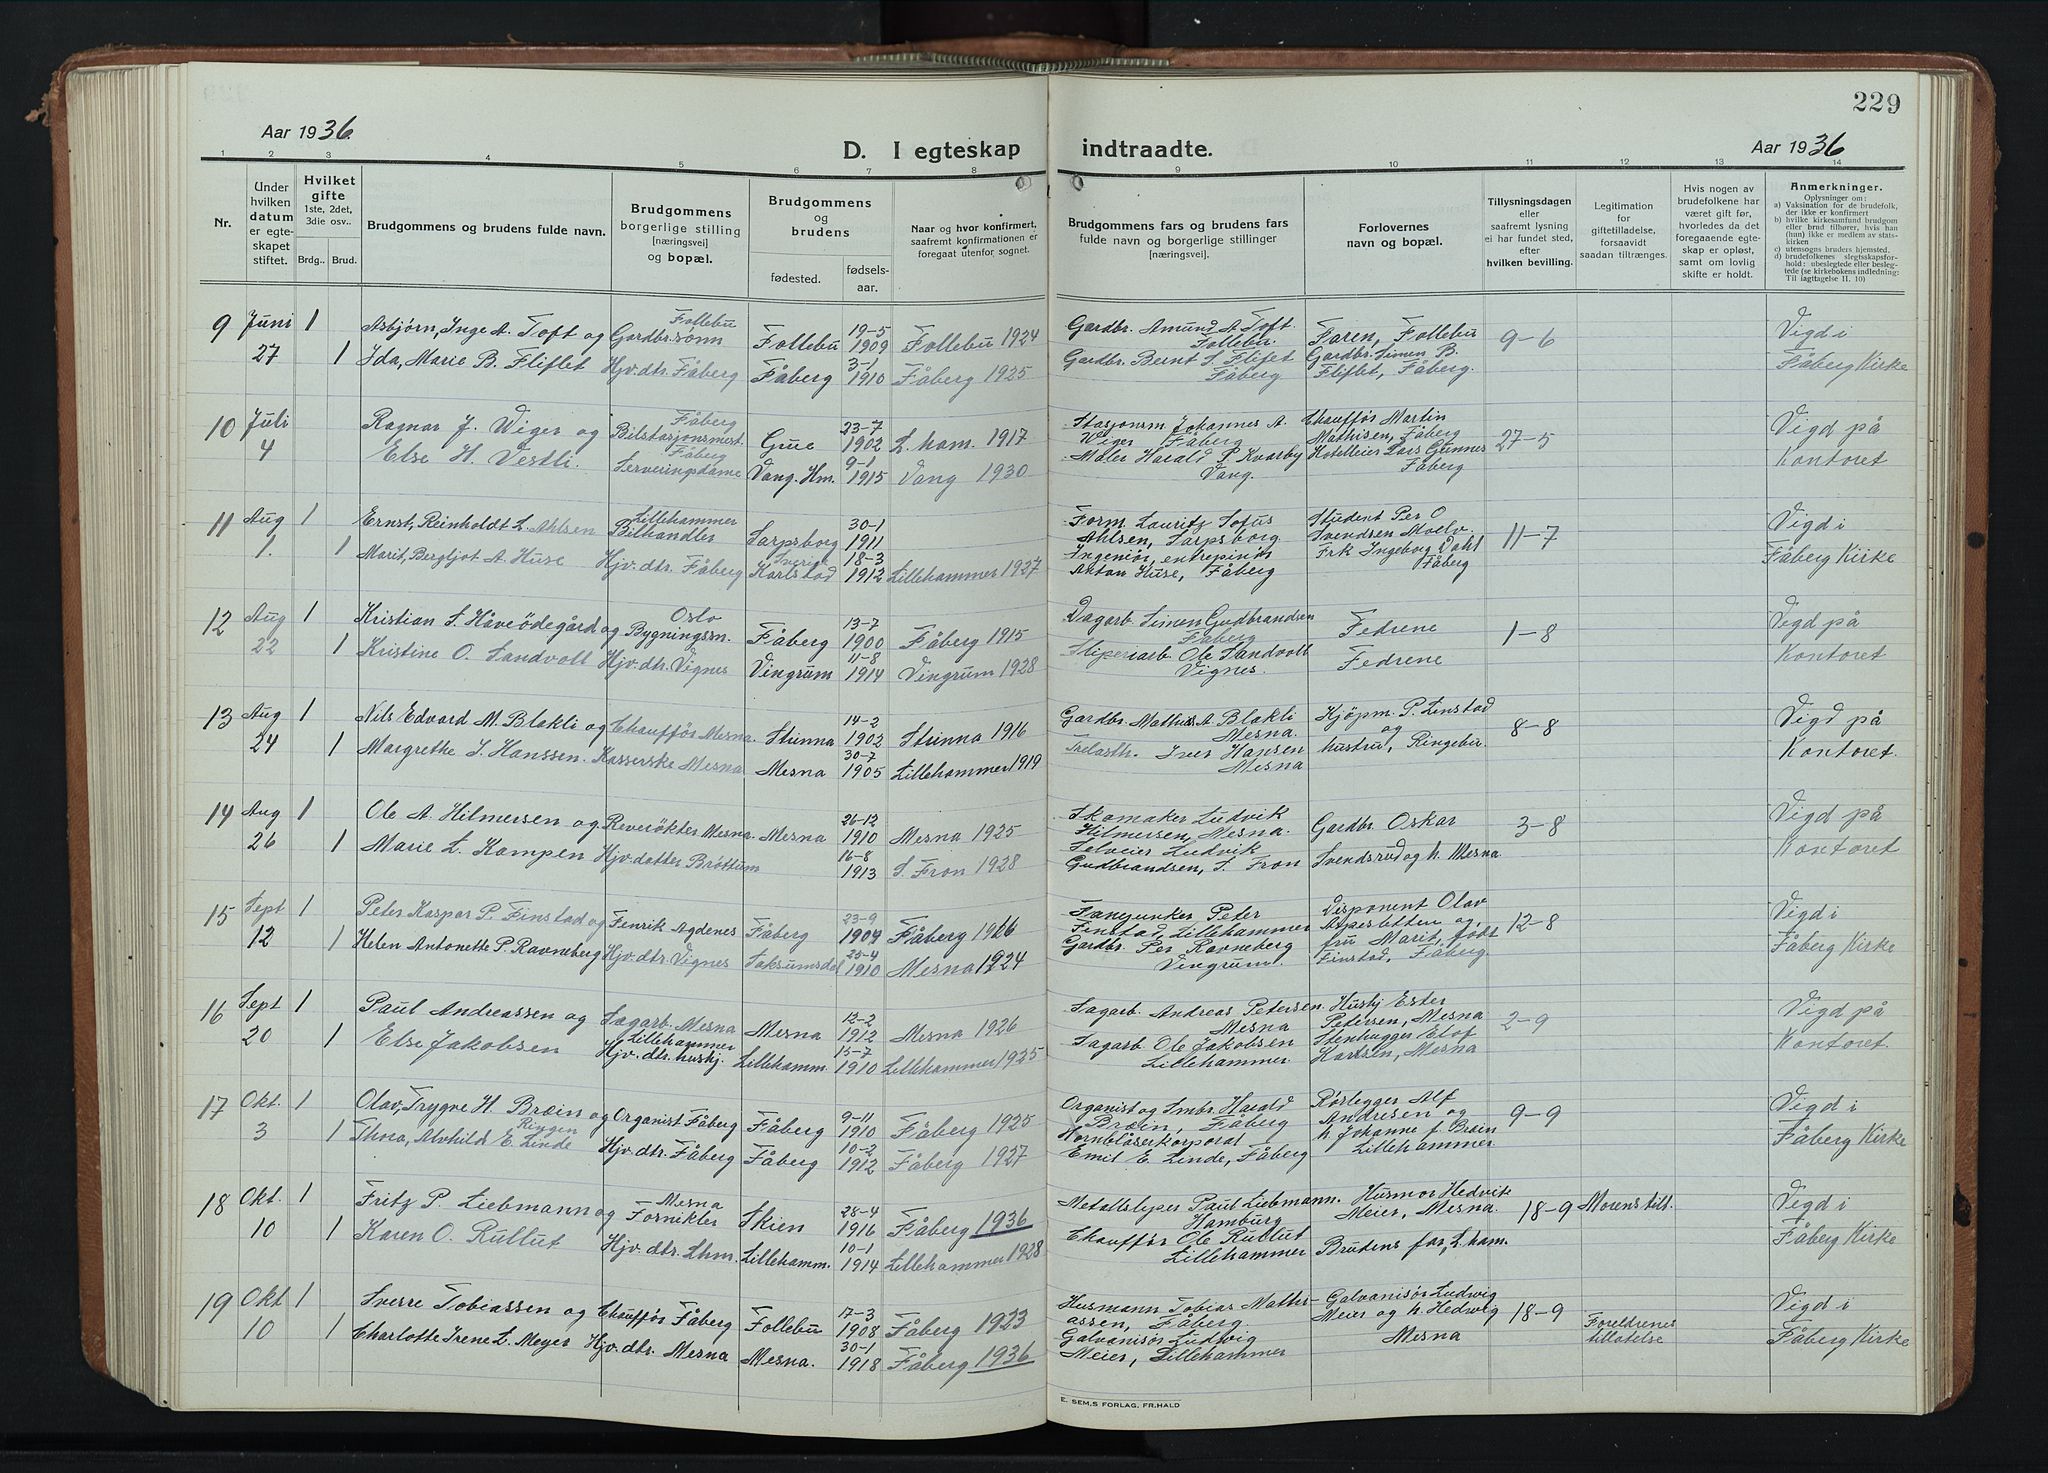 229
Aar 1936.
D. I egteskap indtraadte.
Aar 1936
1 2 3 4 5 6 7 8 9 10 11 12 13 14
Nr.
Under hvilken datum er egte-skapet stiftet.
Hvilket gifte 1ste, 2det, 3die osv..
Brdg. Brud.
Brudgommens og brudens fulde navn.
Brudgommens borgerlige stilling [næringsvei] og bopæl.
Brudgommens og brudens
fødested. fødsels-aar.
Naar og hvor konfirmert, saafremt konfirmationen er foregaat utenfor sognet.
Brudgommens fars og brudens fars fulde navn og borgerlige stillinger [næringsvei].
Forlovernes navn og bopæl.
Tillysningsdagen eller saafremt lysning ei har fundet sted, efter hvilken bevilling.
Legitimation for giftetilladelse, forsaavidt saadan tiltrænges.
Hvis nogen av brudefolkene har været gift før, hvorledes da det foregaaende egte-skap er opløst, samt om lovlig skifte er holdt.
Anmerkninger.
Oplysninger om:
a) Vaksination for de brudefolk, der ikke er konfirmert
b) hvilke kirkesamfund brudgom eller brud tilhører, hvis han (hun) ikke er medlem av stats-kirken
c) utensogns bruders hjemsted.
d) brudefolkenes slegtsskapsfor-hold: ubeslegtede eller besleg-tede (se kirkebokens indledning: Til iagttagelse II. 10)
9 Juni 1 Asbjørn, Inge A. Toft og Follebu Gardbr.sønn Follebu 19-5 1909 Follebu 1924 Gardbr. Amund A. Toft. Follebu. Faren, Follebu 9-6 Vigd i
27 1 Ida, Marie B. Fliflet Hjv. dtr. Fåberg Fåberg 3-1 1910 Fåberg 1925 Gardbr. Bernt S. Fliflet Fåberg Gardbr. Simen B. Fliflet, Fåberg. Fåberg Kirke
10 Juli Ragnar J. Wiger og Fåberg Bilstasjonsmest. Grue 23-7 1902 L.ham. 1917 Stasjonsm Johannes A. Wiger Fåberg Chauffør Martin Mathisen, Fåberg 27-5 Vigd på
4 Else H. Vestli. Fåberg Serveringsdame Vang. Hm. 9-1 1915 Vang 1930 Maler Harald P. Kvarby Vang. Hotelleier Lars Gunnes Fåberg Kontoret
11 Aug 1 Ernst, Reinholdt L. Ahlsen Lillehammer Bilhandler Sarpsborg 30-1 1911 Form. Lauritz Sofus Ahlsen, Sarpsborg Student Per O Svendsen Moelv. 11-7 Vigd i
1. 1 Marit, Bergljot A. Huse Hjv. dtr. Fåberg Sverige Karlstad 18-3 1912 Lillehammer 1927 Ingeniør, entreprenør Anton Huse, Fåberg Frk Ingeborg Dahl Fåberg Fåberg Kirke
12 Aug 1 Kristian S. Håveødegård og Oslo Bygningssn. Fåberg 13-7 1900 Fåberg 1915 Dagarb. Simen Gudbrandsen Fåberg Fedrene 1-8 Vigd på
22 1 Kristine O. Sandvoll Hjv. dtr. Vignes Vingrum 11-8 1914 Vingrum 1928 Sliperiarb. Ole Sandvoll Vignes. Fedrene Kontoret
13 Aug 1 Nils Edvard M. Blakli og Chauffør Mesna. Strinna 14-2 1902 Strinna 1916 Gardbr. Mathias A. Blakli Mesna. Kjøpm. P. Linstad og 8-8 Vigd på
24 1 Margrethe I. Hanssen. Kasserske Mesna Mesna 30-7 1905 Lillehammer 1919 Trelasth. Iver Hansen Mesna hustru, Ringebu. Kontoret.
14 Aug 1 Ole A. Hilmersen og Reverøkter Mesna. Mesna 26-12 1910 Mesna 1925 Skomaker Ludvik Hilmersen, Mesna. Gardbr. Oskar 3-8 Vigd på
26 1 Marie L. Kampen Hjv. datter Brøttum 16-8 1913 S. Fron 1928 Selveier Ludvik Gudbrandsen, S. Fron Svendsrud og h. Mesna. Kontoret
15 Sept 1 Peter Kaspar P. Finstad og Fenrik Agdenes Fåberg 23-9 1909 Fåberg 1926 Fanejunker Peter Finstad, Lillehammer Disponent Olav Aspesletten og 12-8 Vigd i
12 1 Helen Antonette P. Ravneberg Hjv. dtr. Vignes Saksumsdal 25-4 1910 Mesna 1924 Gardbr. Per Ravneberg Vingrum. fru Marit, født Finstad, Fåberg. Fåberg Kirke
16 Sept 1 Paul Andreassen og Sagarb. Mesna Mesna 12-2 1912 Mesna 1926 Sagarb. Andreas Petersen. Mesna Hushj Ester Petersen, Mesna 2-9 Vigd på
20 1 Else Jakobsen Lillehammer Hjv. dtr. hushj. Lillehamm. 15-7 1910 Lillehammer 1925 Sagarb. Ole Jakobsen Lillehammer Stenhugger Elof Karlsen, Mesna Kontoret.
17 Okt. 1 Olav, Trygve H. Bræin og Organist Fåberg Fåberg 9-11 1910 Fåberg 1925 Organist og Smbr. Harald Bræin, Fåberg Rørlegger Alf Andresen og 9-9 Vigd i
3 1 Thora, Alvhild E. Ringen Linde Hjv. dtr. Fåberg Fåberg 10-2 1912 Fåberg 1927 Hornblåserkorporal Emil E. Linde, Fåberg h. Johanne f. Bræin Lillehammer Fåberg Kirke
18 Okt. 1 Fritz P. Liebmann og Mesna Fornikler Skien 28-4 1916 Fåberg 1936 Metallsliper Paul Liebmann. Hamburg Husmor Hedvik Meier, Mesna. 18-9 Morens till. Vigd i
10 1 Karen O. Rullut Hjv. dtr. Lhm. Lillehamm. 10-1 1914 Lillehammer 1928 Chauffør Ole Rullut Lillehammer Brudens far, L.ham. Fåberg Kirke
19 Okt 1 Sverre Tobiassen og Chauffør Fåberg Follebu 17-3 1908 Fåberg 1923 Husmann Tobias Mathi-assen, Fåberg. Galvanisør Ludwig Meier og h. Hedwig 18-9 Foreldrenes Vigd i
10 1 Charlotte Irene L. Meyer Hjv. dtr. Mesna Mesna. 30-1 1918 Fåberg 1936 Galvanisør Ludwig Meier, Lillehammer Mesna tillatelse Fåberg Kirke
E. SEM,S FORLAG, FR.HALD